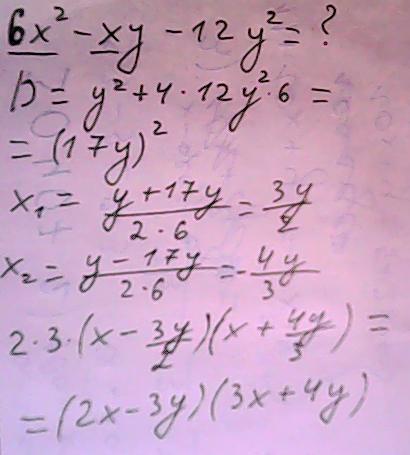 6x² - xy - 12y² = ?
D = y² + 4 · 12y² · 6 =
= (17y)²
x₁ = (y + 17y)/(2 · 6) = 3y/2
x₂ = (y - 17y)/(2 · 6) = -4y/3
2 · 3 · (x - 3y/2)(x + 4y/3) =
= (2x - 3y)(3x + 4y)